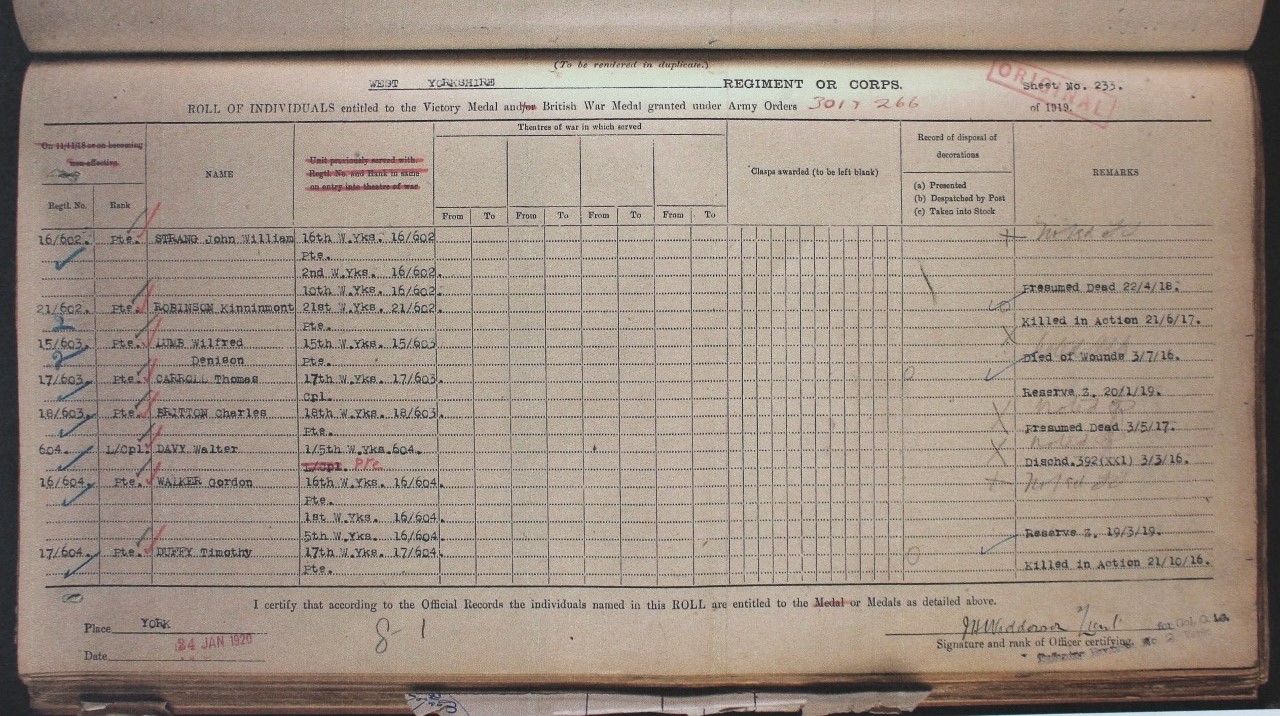 (To be rendered in duplicate.)
WEST YORKSHIRE REGIMENT OR CORPS.
ORIGINAL
Sheet No. 233.
ROLL OF INDIVIDUALS entitled to the Victory Medal and/or British War Medal granted under Army Orders 301 & 266 of 1919.
On 11/11/18 or on becoming non-effective.
Regtl. No. Rank
NAME
Unit previously served with. Regtl. No. and Rank in same on entry into theatre of war.
Theatres of war in which served
From To From To From To From To
Clasps awarded (to be left blank)
Record of disposal of decorations
(a) Presented
(b) Despatched by Post
(c) Taken into Stock
REMARKS
16/602. Pte. STRANG John William 16th W.Yks. 16/602 Noted
Pte.
2nd W.Yks. 16/602.
10th W.Yks. 16/602. Presumed Dead 22/4/18.
21/602. Pte. ROBINSON Kinninmont 21st W.Yks. 21/602.
2 Pte. Killed in Action 21/6/17.
15/603. Pte. LUMB Wilfred 15th W.Yks. 15/603
2 Denison Pte. Died of Wounds 3/7/16.
17/603. Pte. CARROLL Thomas 17th W.Yks. 17/603.
Cpl. Reserve Z. 20/1/19.
18/603. Pte. BRITTON Charles 18th W.Yks. 18/603. Noted
Pte. Presumed Dead 3/5/17.
604. L/Cpl. DAVY Walter 1/5th W.Yks.604. Noted
L/Cpl. Pte Dischd.392(XXI) 3/3/16.
16/604. Pte. WALKER Gordon 16th W.Yks. 16/604. Noted
Pte.
1st W.Yks. 16/604.
5th W.Yks. 16/604. Reserve Z. 19/3/19.
17/604. Pte. DUFFY Timothy 17th W.Yks. 17/604.
Pte. Killed in Action 21/10/16.
I certify that according to the Official Records the individuals named in this ROLL are entitled to the Medal or Medals as detailed above.
Place YORK
24 JAN 1920
Date
8-1
Lieut for
Signature and rank of Officer certifying.